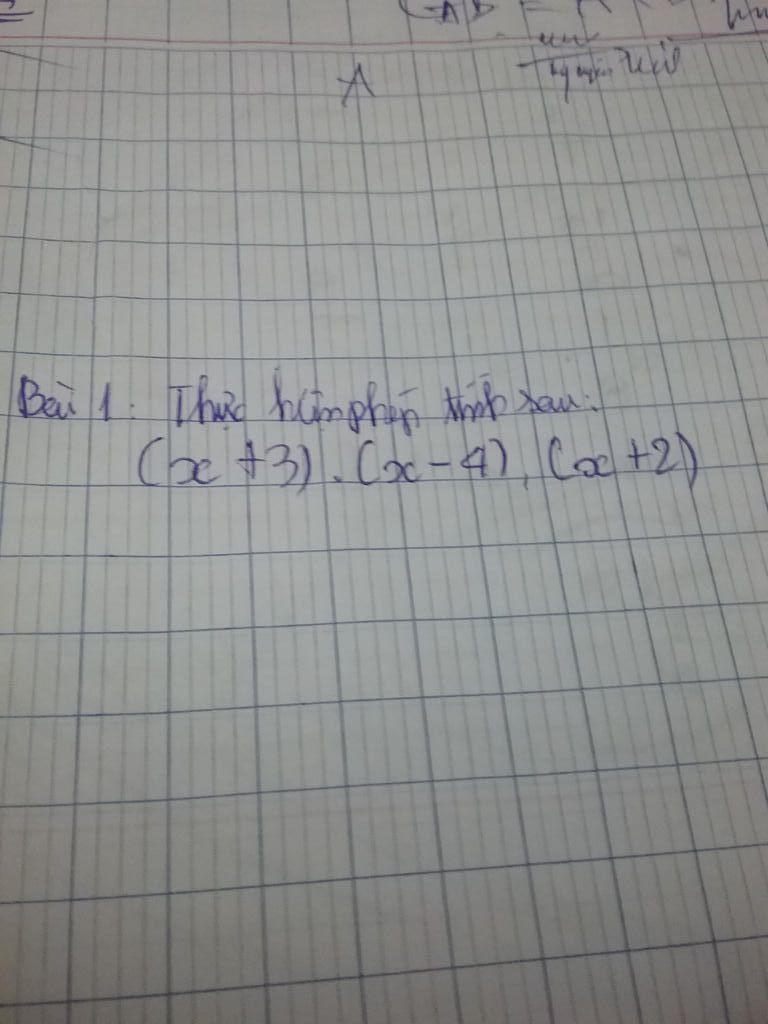 A
Bài 1: Thực hiện phép tính sau:
(x + 3) . (x - 4) . (x + 2)